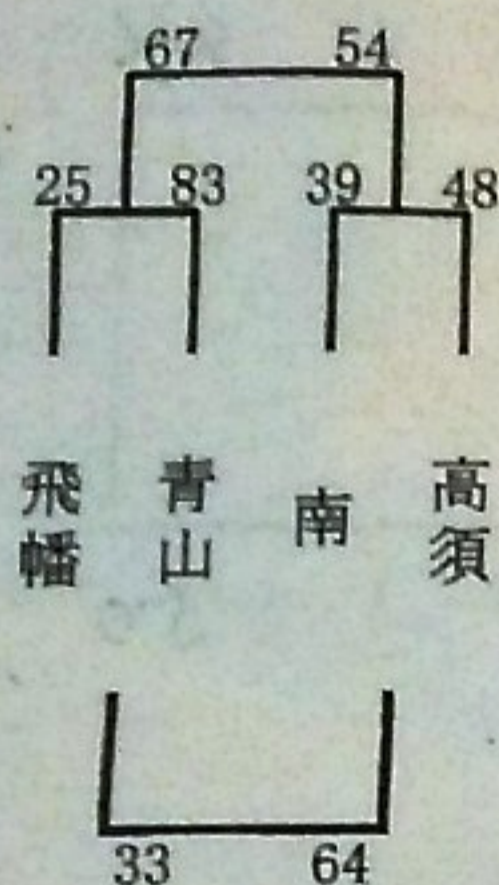 67 54
25 83 39 48
飛幡
青山
南
高須
33 64